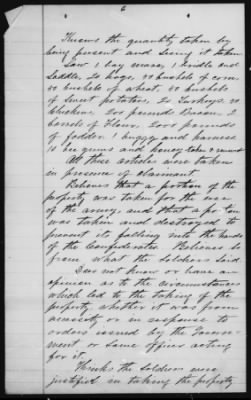 6
Knows the quantity taken by
being present and seeing it taken
Saw 1 bay mare, 1 bridle and
saddle, 20 hogs, bushels of corn
bushels of wheat, bushels
of sweet potatoes, 20 Turkeys,
Chickens, 200 pounds Bacon, 2
barrels of Flour, 2000 pounds
of fodder 1 buggy and harness
10 bee gums and honey taken
All these articles were taken
in presence of claimant
Believes that a portion of the
property was taken for the use
of the army, and that a por tion
was taken and destroyed to
prevent its falling into the hands
of the Confederates. Believes so
from what the soldiers said
Does not know or have an
opinion as to the circumstances
which led to the taking of the
property whether it was from
necessity or in response to
orders issued by the Govern-
ment or some officer acting
for it.
Thinks the soldiers were
justified in taking the property